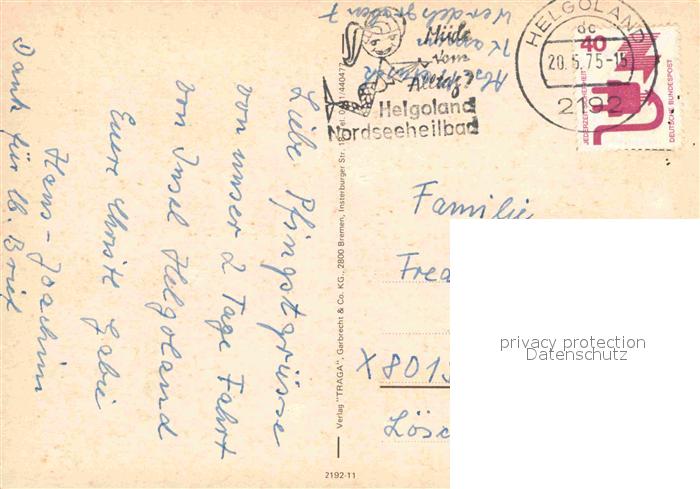 Liebe Pfingstgrüsse
von unser 2 Tage Fahrt
von Insel Helgoland
Eure Christl Gabie
Hans-Joachim
Dank für lb. Brief
Verlag "TRAGA", Garbrecht & Co. KG., 2800 Bremen, Insterburger Str. 16, Tel. 0421/440477
2192-11
Müde
vom
Alltag?
Helgoland
Nordseeheilbad
HELGOLAND
dc
20.5.75-15
2192
40
JEDERZEIT SICHERHEIT
DEUTSCHE BUNDESPOST
Familie
Fred
X801
Lösc
privacy protection
Datenschutz